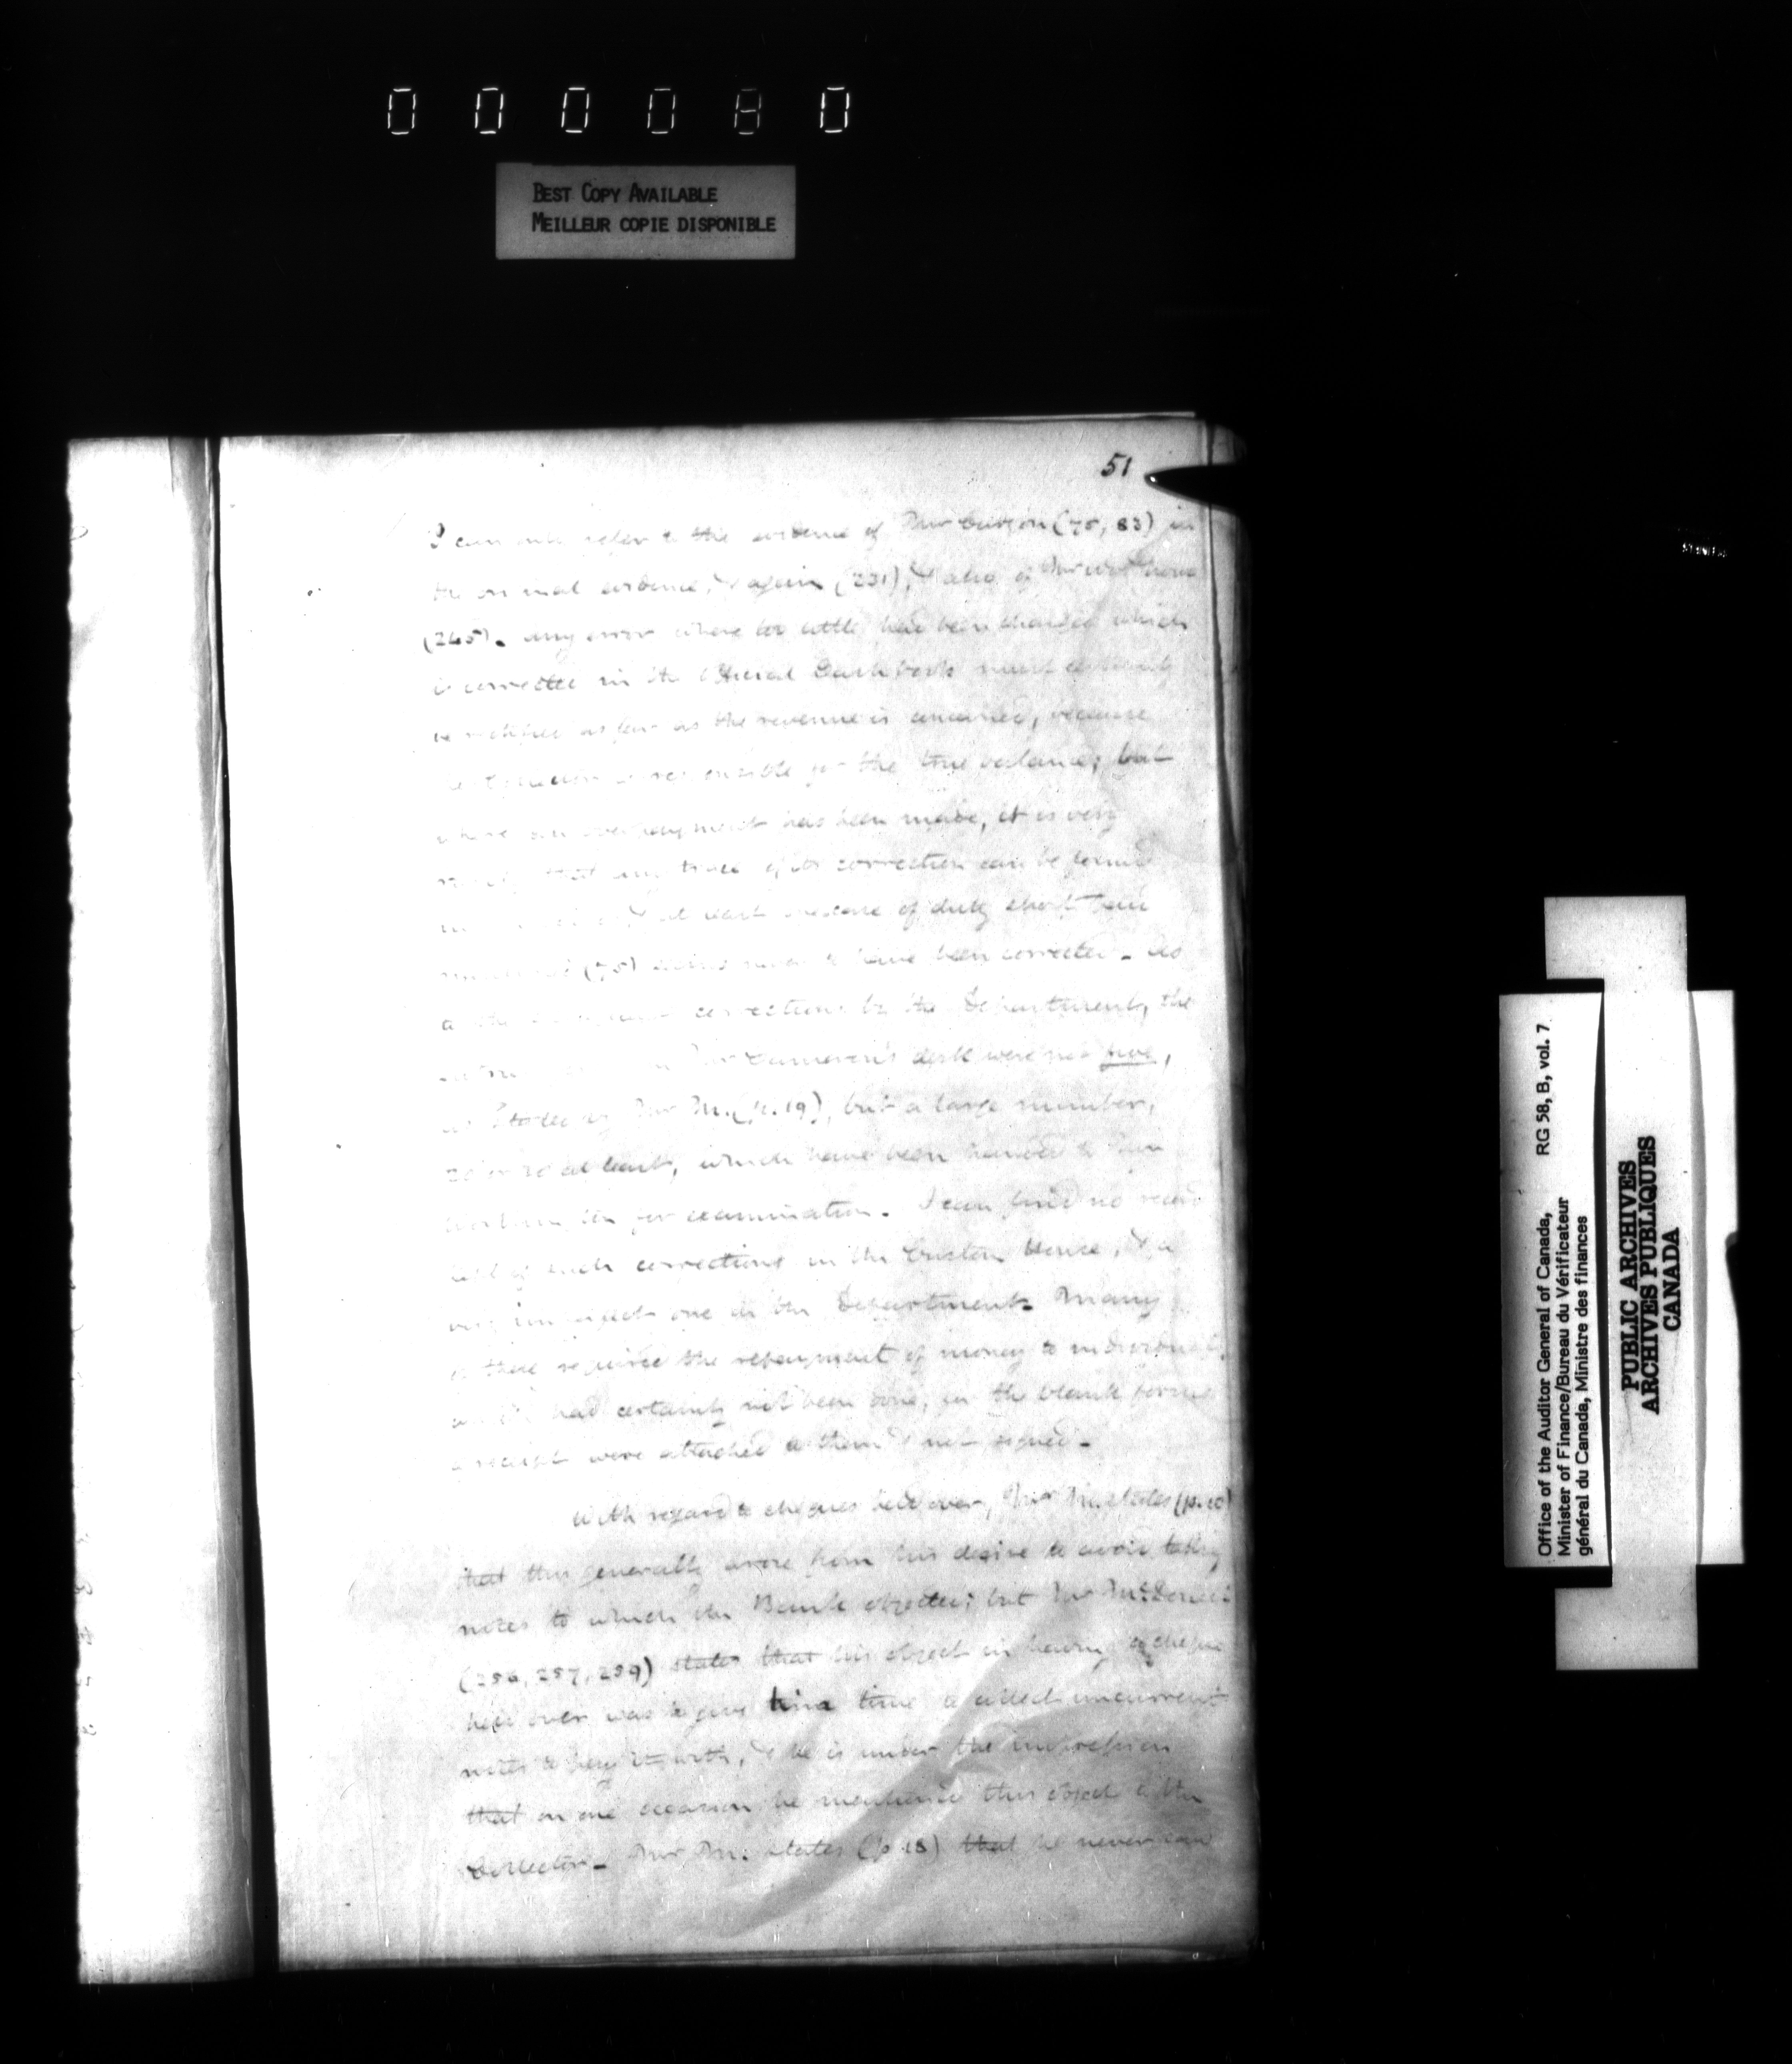 000080
BEST COPY AVAILABLE
MEILLEUR COPIE DISPONIBLE
51
I can only refer to the evidence of Mr (75, 83) in
the evidence, & again (231), & also of Mr
(265). Any error where too little had been charged which
is corrected in the Official Cash book must certainly
be rectified as far as the revenue is concerned, because
the Collector is responsible for the true balance; but
where an overpayment has been made, it is very
that any trace of its correction can be found
at least one case of duty short paid
(75) to have been corrected. As
to the corrections by the Department, the
Mr Cameron's desk were not five,
as stated by Mr M. (p. 19), but a large number,
20 or 30 at least, which have been handed to
for examination. I can find no record
of such corrections in the Custom House, & a
very imperfect one in the Department. Many
of these required the repayment of money to individuals,
which had certainly not been done, for the blank forms
receipt were attached to them & not signed.
With regard to cheques held over, Mr M. states (p. 20)
that this generally arose from his desire to avoid taking
notes to which the Bank objected; but Mr
(256, 257, 259) states that his object in having a cheque
held over was to give him time to collect uncurrent
notes to pay it with, & he is under the impression
that on one occasion he mentioned this object to the
Collector. Mr M. states (p 18) that he never
Office of the Auditor General of Canada, RG 58, B, vol. 7
Minister of Finance/Bureau du Vérificateur
général du Canada, Ministre des finances
PUBLIC ARCHIVES
ARCHIVES PUBLIQUES
CANADA